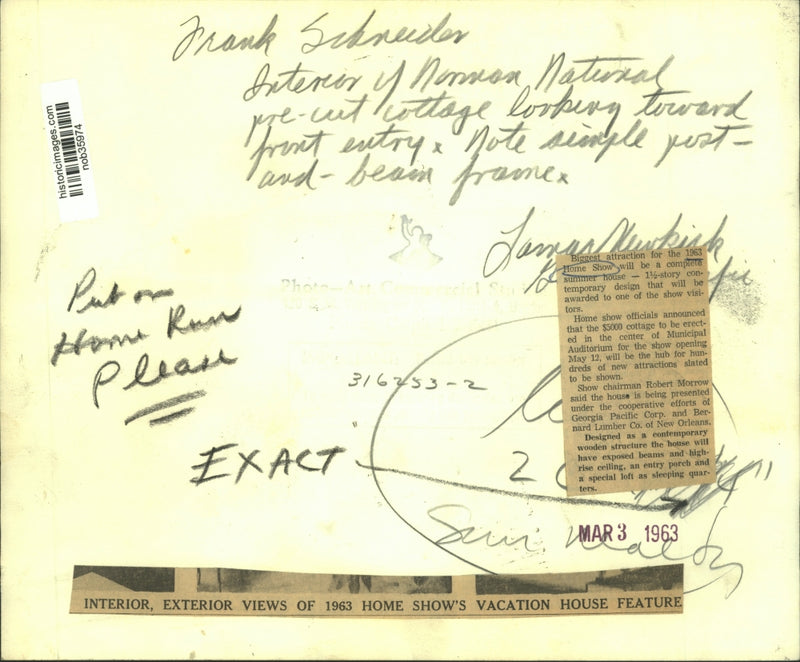 Frank Schneider
Interior of Norman National
pre-cut cottage looking toward
front entry. Note simple post-
and-beam frame.
historicimages.com
nob35974
Lamar Newkirk
Photo-Art Commercial
Put on
Home Run
Please
316253-2
EXACT
2
Biggest attraction for the 1963
Home Show will be a complete
summer house — 1½-story con-
temporary design that will be
awarded to one of the show visi-
tors.
Home show officials announced
that the $5000 cottage to be erect-
ed in the center of Municipal
Auditorium for the show opening
May 12, will be the hub for hun-
dreds of new attractions slated
to be shown.
Show chairman Robert Morrow
said the house is being presented
under the cooperative efforts of
Georgia Pacific Corp. and Ber-
nard Lumber Co. of New Orleans.
Designed as a contemporary
wooden structure the house will
have exposed beams and high-
rise ceiling, an entry porch and
a special loft as sleeping quar-
ters.
MAR 3 1963
Sun.
INTERIOR, EXTERIOR VIEWS OF 1963 HOME SHOW'S VACATION HOUSE FEATURE